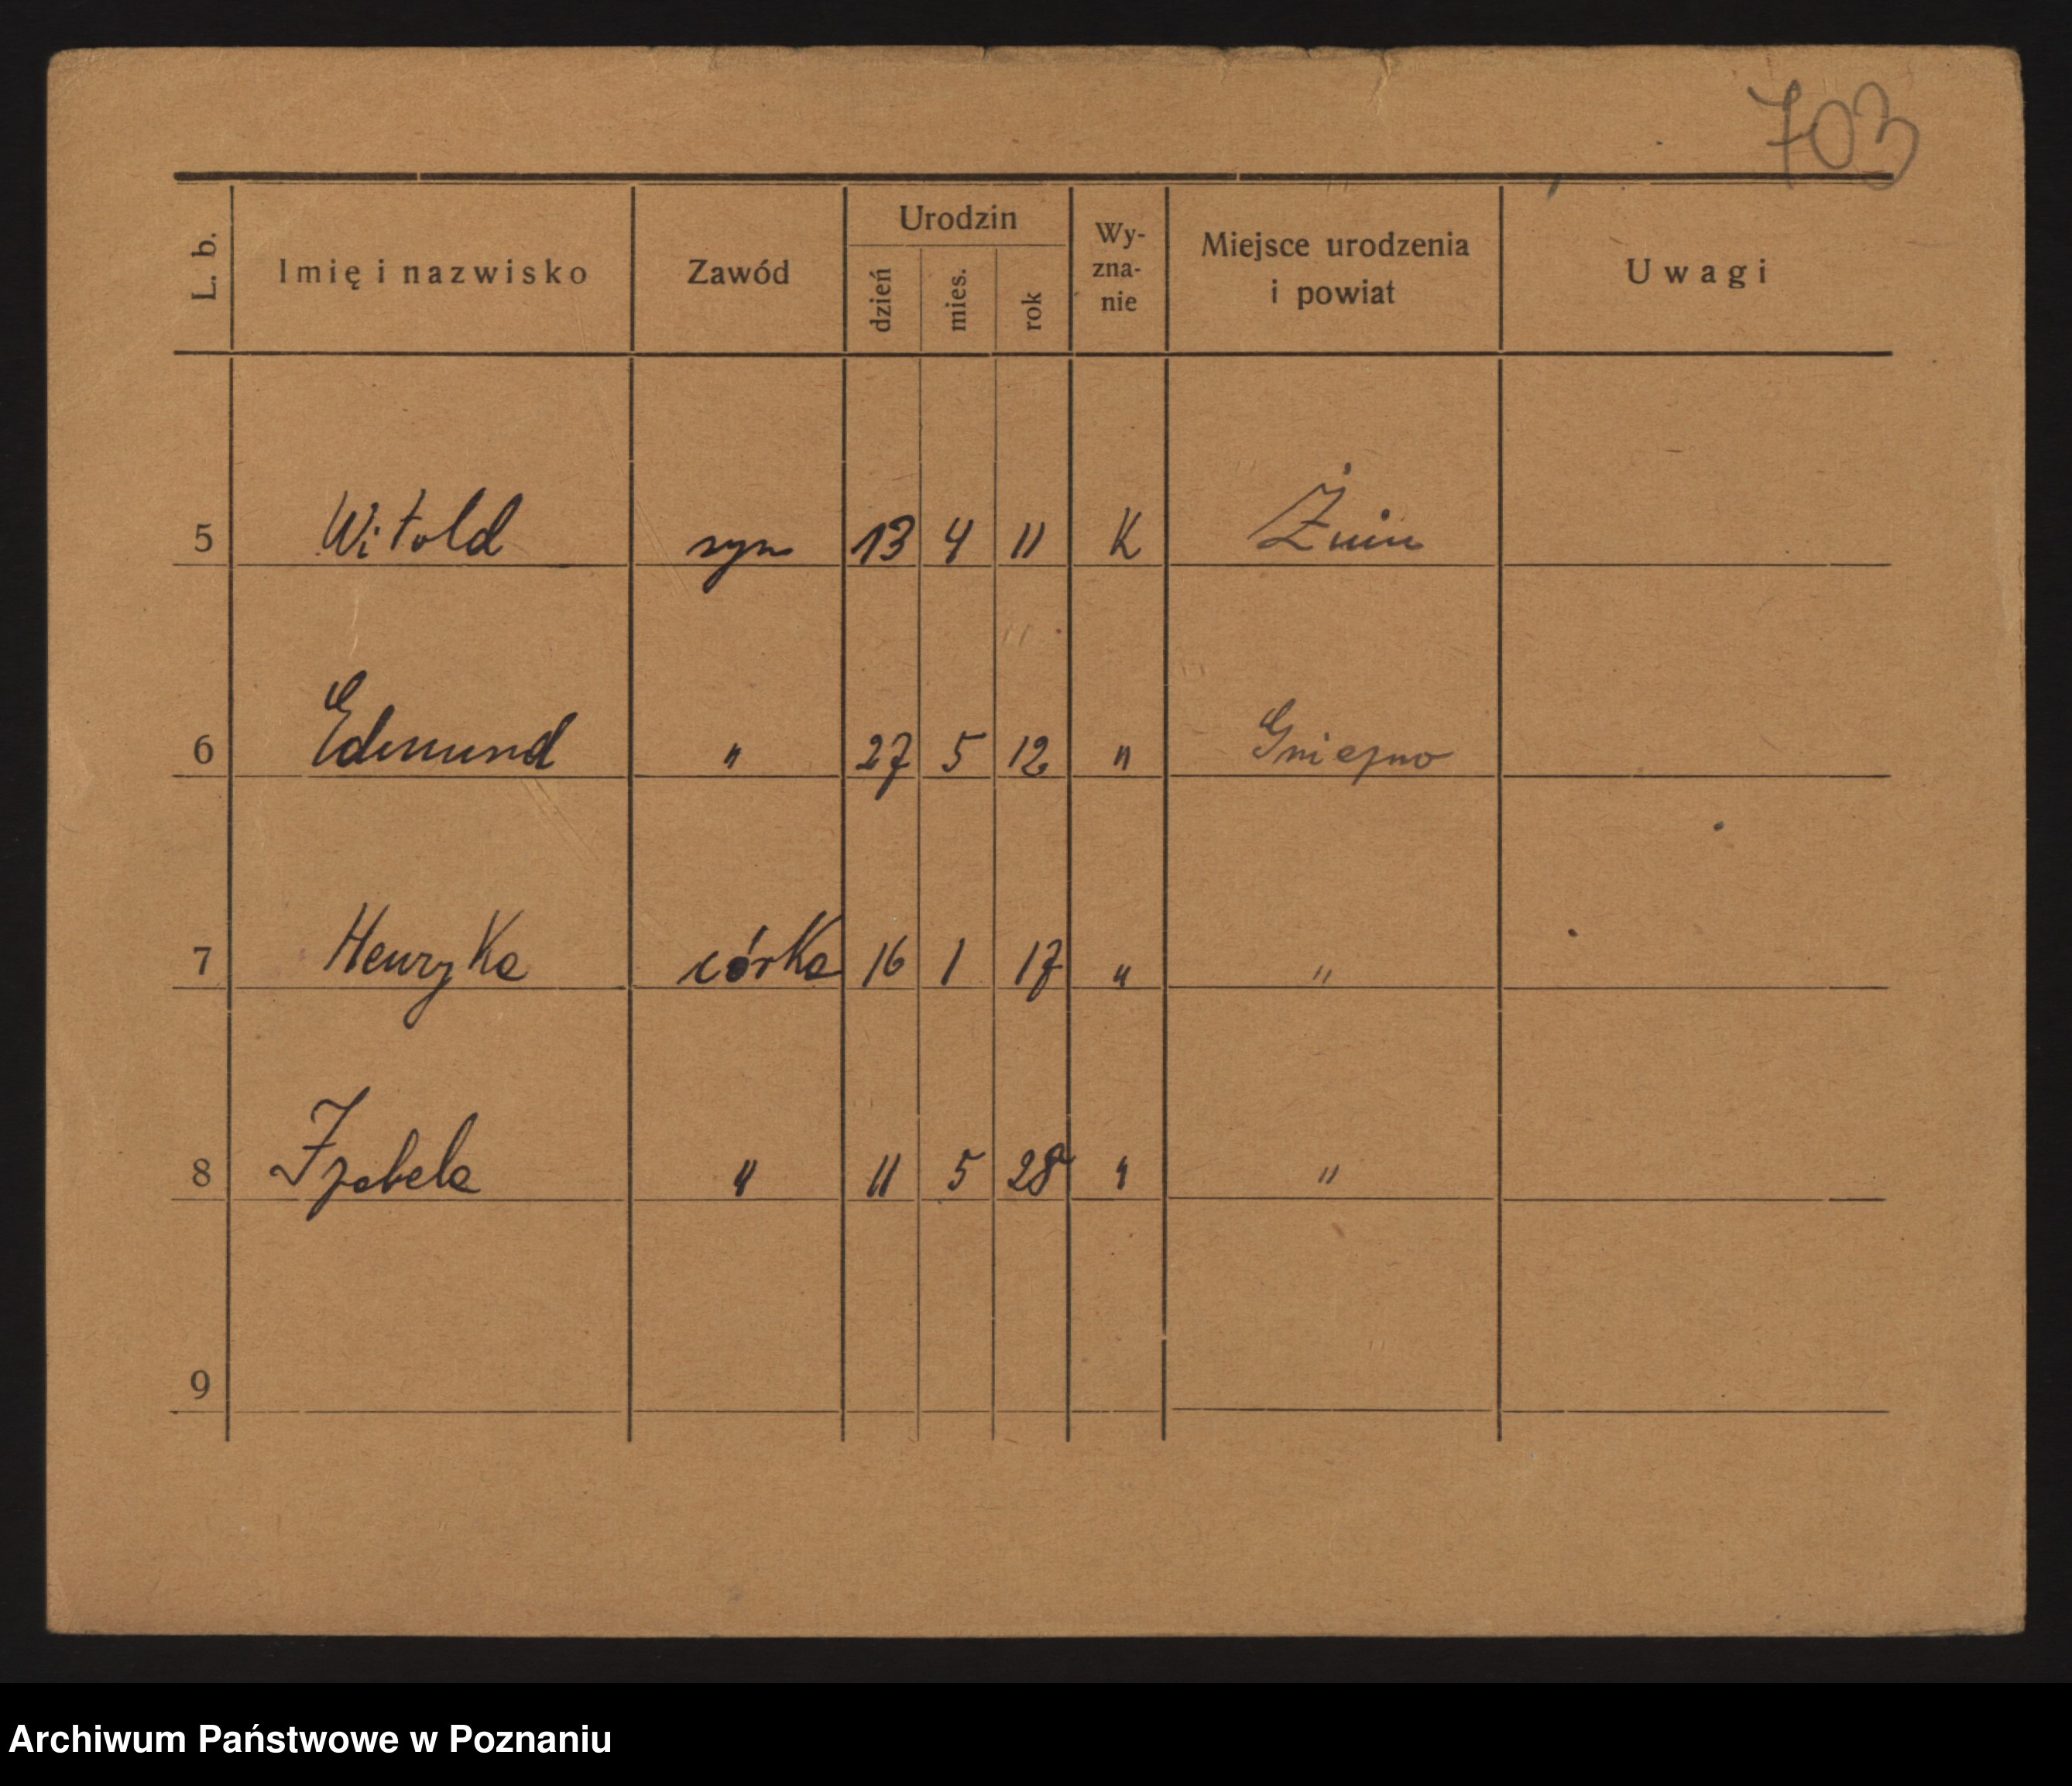 703
L. b. Imię i nazwisko Zawód Urodzin dzień mies. rok Wy-zna-nie Miejsce urodzenia i powiat Uwagi
5 Witold syn 13 4 11 K Żnin
6 Edmund " 27 5 12 " Gniezno
7 Henryka córka 16 1 17 " "
8 Izabela " 11 5 28 " "
9
Archiwum Państwowe w Poznaniu